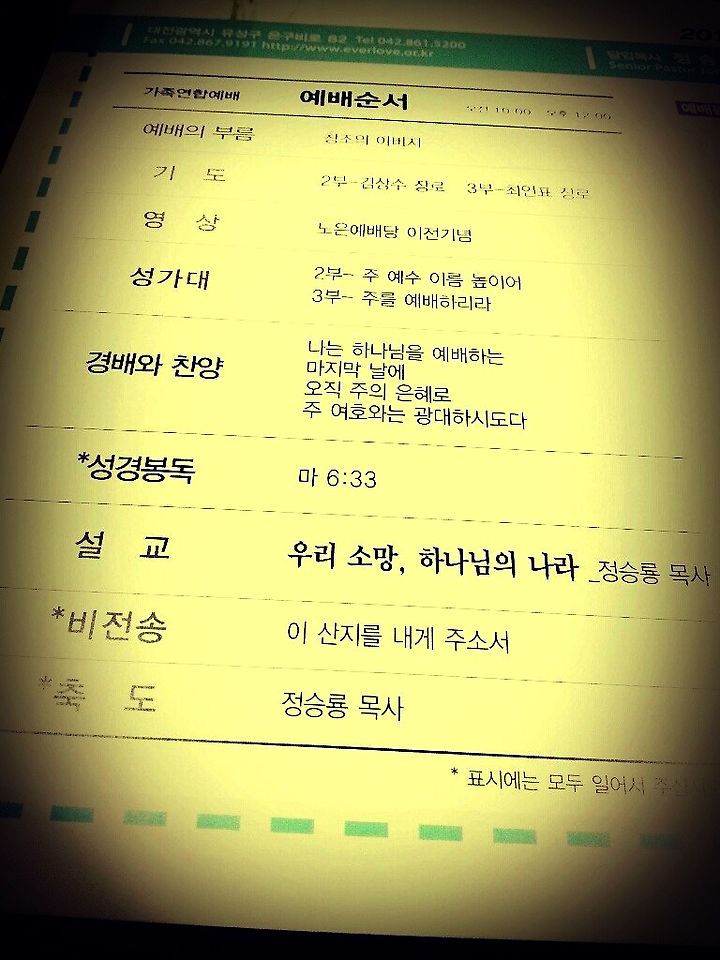 대전광역시 유성구 은구비로 82 Tel 042.861.5200
Fax 042.867.9191 http://www.everlove.or.kr
담임목사 정승
Senior Pastor
20
가족연합예배 예배순서 오전 10:00 오후 12:00
예배의 부름 창조의 아버지
기 도 2부-김상수 장로 3부-최인표 장로
영 상 노은예배당 이전기념
성가대 2부- 주 예수 이름 높이어
3부- 주를 예배하리라
경배와 찬양 나는 하나님을 예배하는
마지막 날에
오직 주의 은혜로
주 여호와는 광대하시도다
*성경봉독 마 6:33
설 교 우리 소망, 하나님의 나라 _정승룡 목사
*비전송 이 산지를 내게 주소서
*축 도 정승룡 목사
* 표시에는 모두 일어서